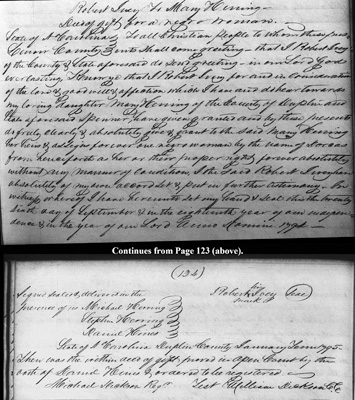 Robert Ivey To Mary Herring
Deed of gift for a negro woman.
State of N Carolina To all Christian people to whom these pres-
Lenoir County ents shall come greeting - that I Robert Ivey
of the County & State aforesaid do send greeting - in our Lord God
everlasting & know ye that I Robert Ivey for and in Consideration
of the love & good will & affection which I have and do bear towards
my loving Daughter Mary Herring of the County of Duplin and
State aforesaid Spinner have given & granted and by these presents
do fully clearly & absolutely give & grant to the said Mary Herring
her heirs & assigns forever one negro woman by the name of Dorcas
from henceforth as her or their proper rights forever absolutely
without any manner of Condition. I the said Robert Ivey have
absolutely of my own accord set & put in further testimony. In
witness whereof I have hereunto set my hand & Seal this the twenty
sixth day of September & in the eighteenth year of our indepen-
dence & in the year of our Lord Anno Domini
Continues from Page 123 (above).
(124)
Signed sealed, delivered in the Robert Ivey Seal
presence of us Michael Herring mark
Stephen Herring
Daniel Hines
State of N Carolina Duplin County January Term 1795
Then was the within deed of gift proved in Open Court by the
oath of Daniel Hines & ordered to be registered
Test William Dickson C.C.